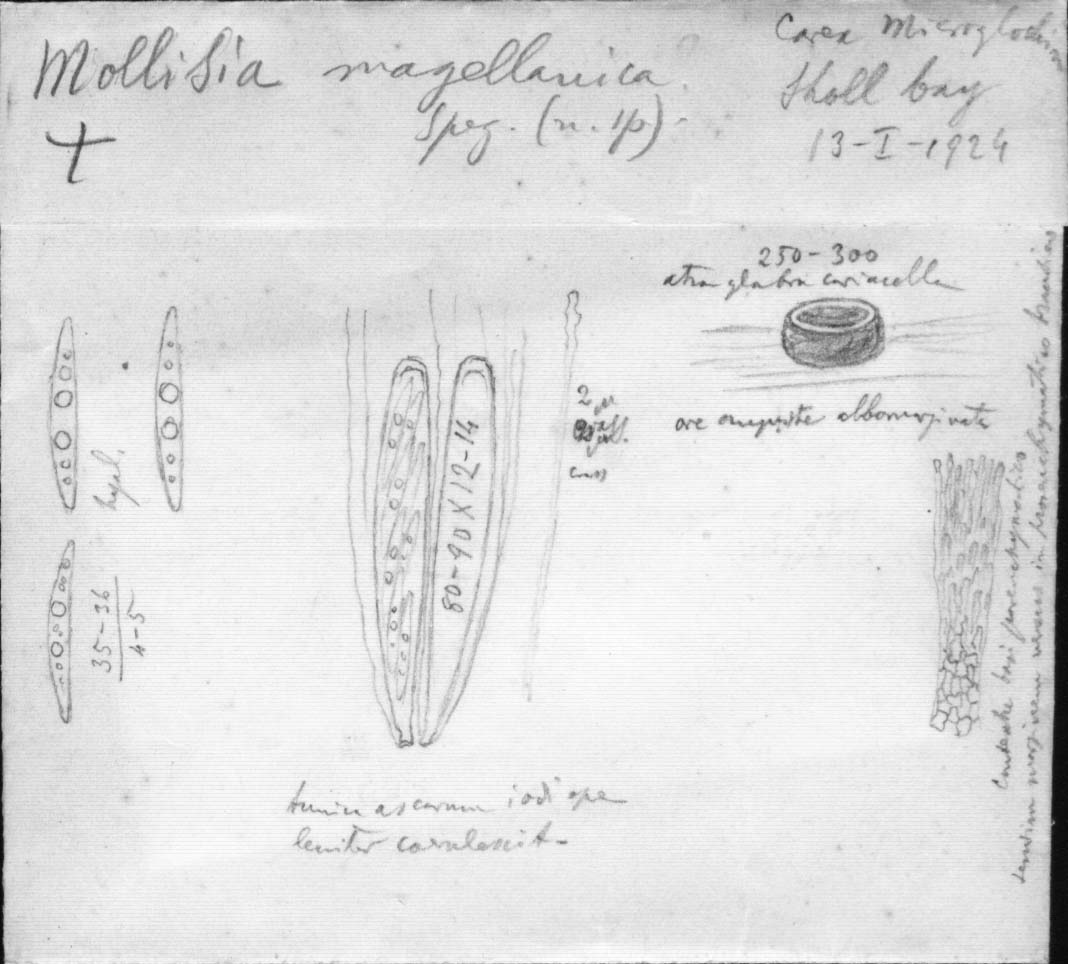 Mollisia magellanica
Speg. (n. sp)-
Carex Microglochin
Sholl bay
13-I-1924
250-300
atra glabra coriacella
ore anguste albomarginata
hyal.
35-36
4-5
80-90 X 12-14
2 µ
crass
tunica ascorum iodi ope
leniter coerulescit-
Contextu basi parenchymatico
sensim marginem versus in prosenchymatico